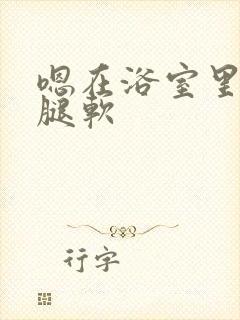 嗯在浴室里
腿軟
行字